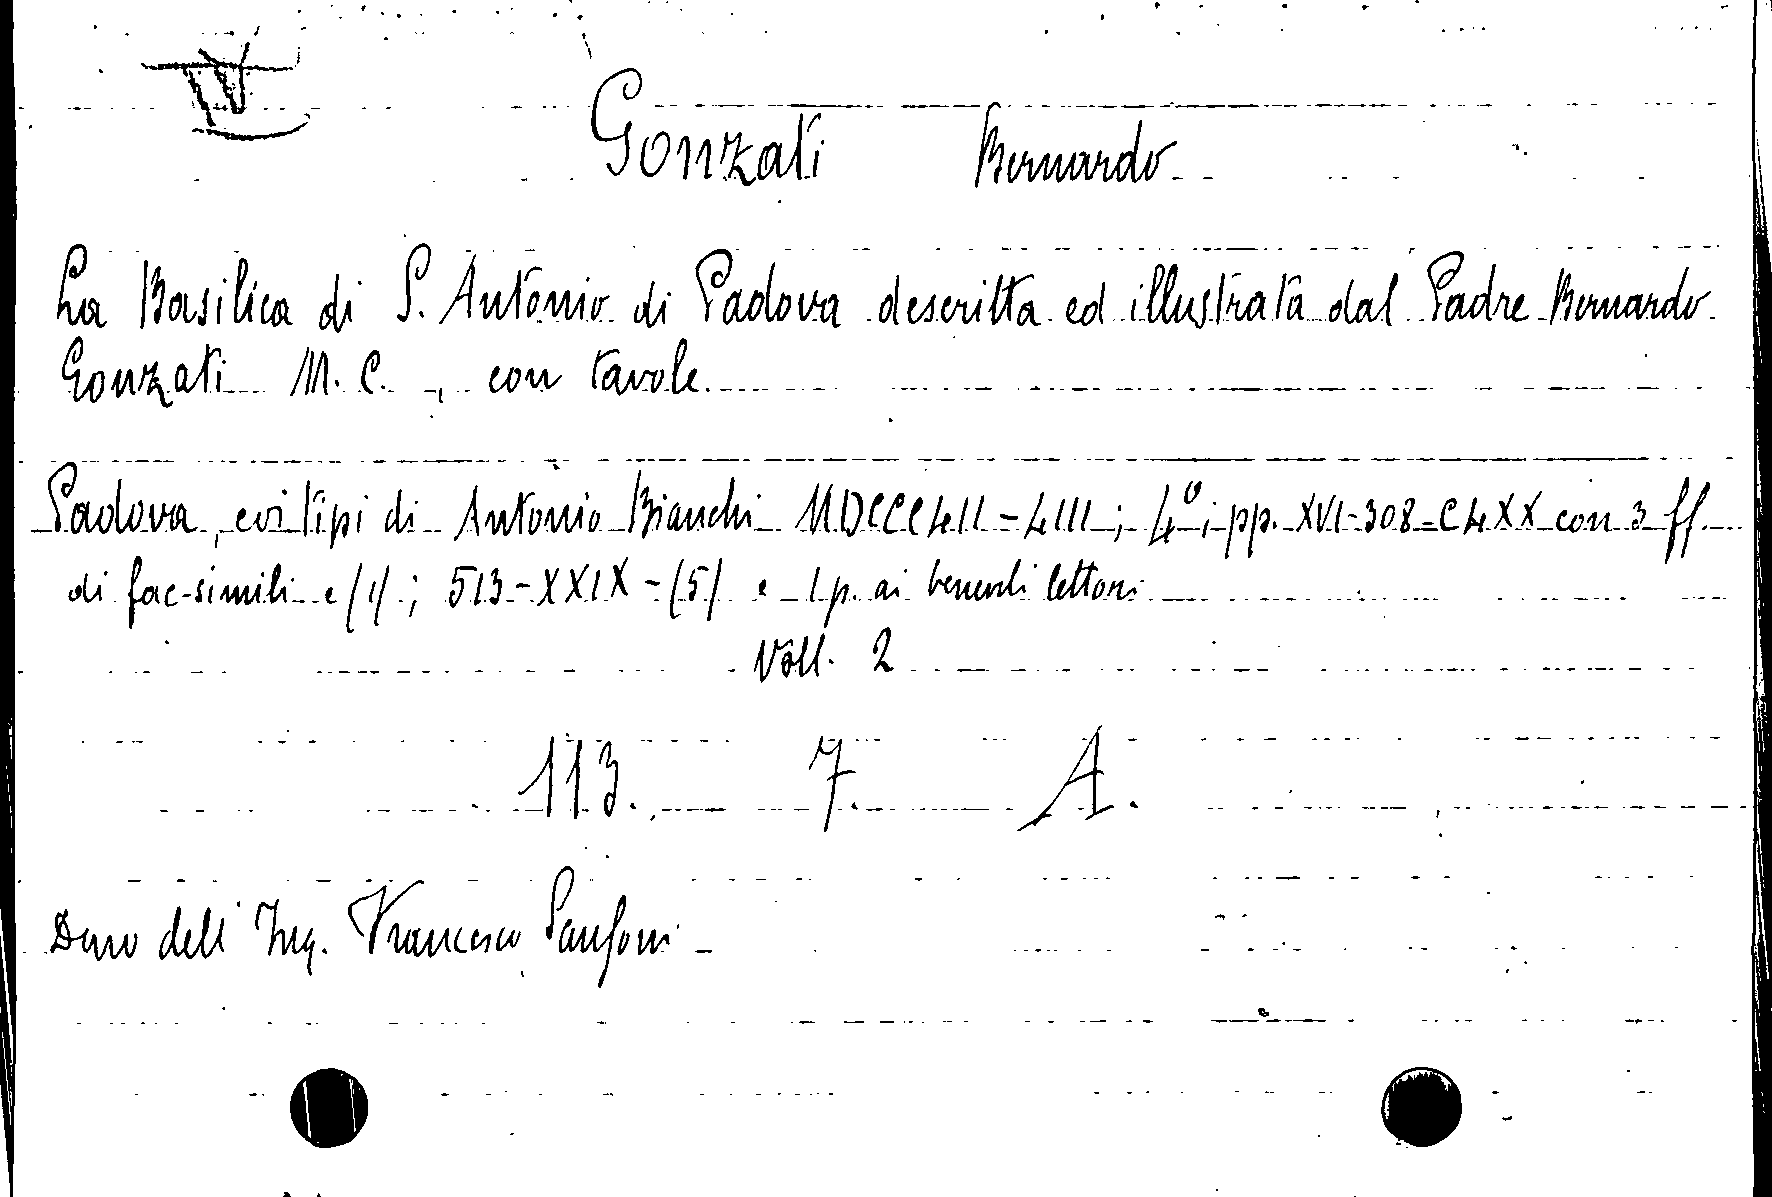 IV
Gonzati Bernardo
La Basilica di S. Antonio di Padova descritta ed illustrata dal Padre Bernardo
Gonzati M. C. , con tavole
Padova, coi tipi di Antonio Bianchi MDCCCLII-LIII; 4°; pp. XVI-308-CLXX con 3 ff.
di fac-simili e (1) ; 513-XXIX-(5) e 1 p. ai benevoli lettori
Voll. 2
113. 7. A.
Dono dell' Ing. Francesco